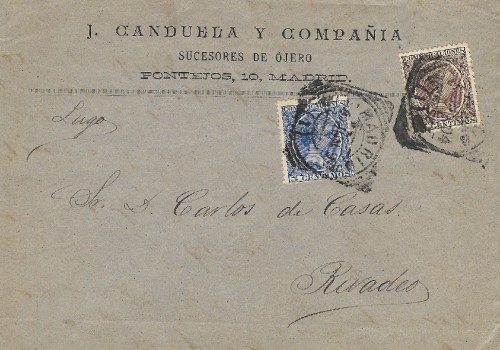 J. CANDUELA Y COMPAÑIA
SUCESORES DE ÓJERO
PONTEJOS, 10, MADRID.
Lugo
Sr. D. Carlos de Casas.
Rivadeo
MADRID